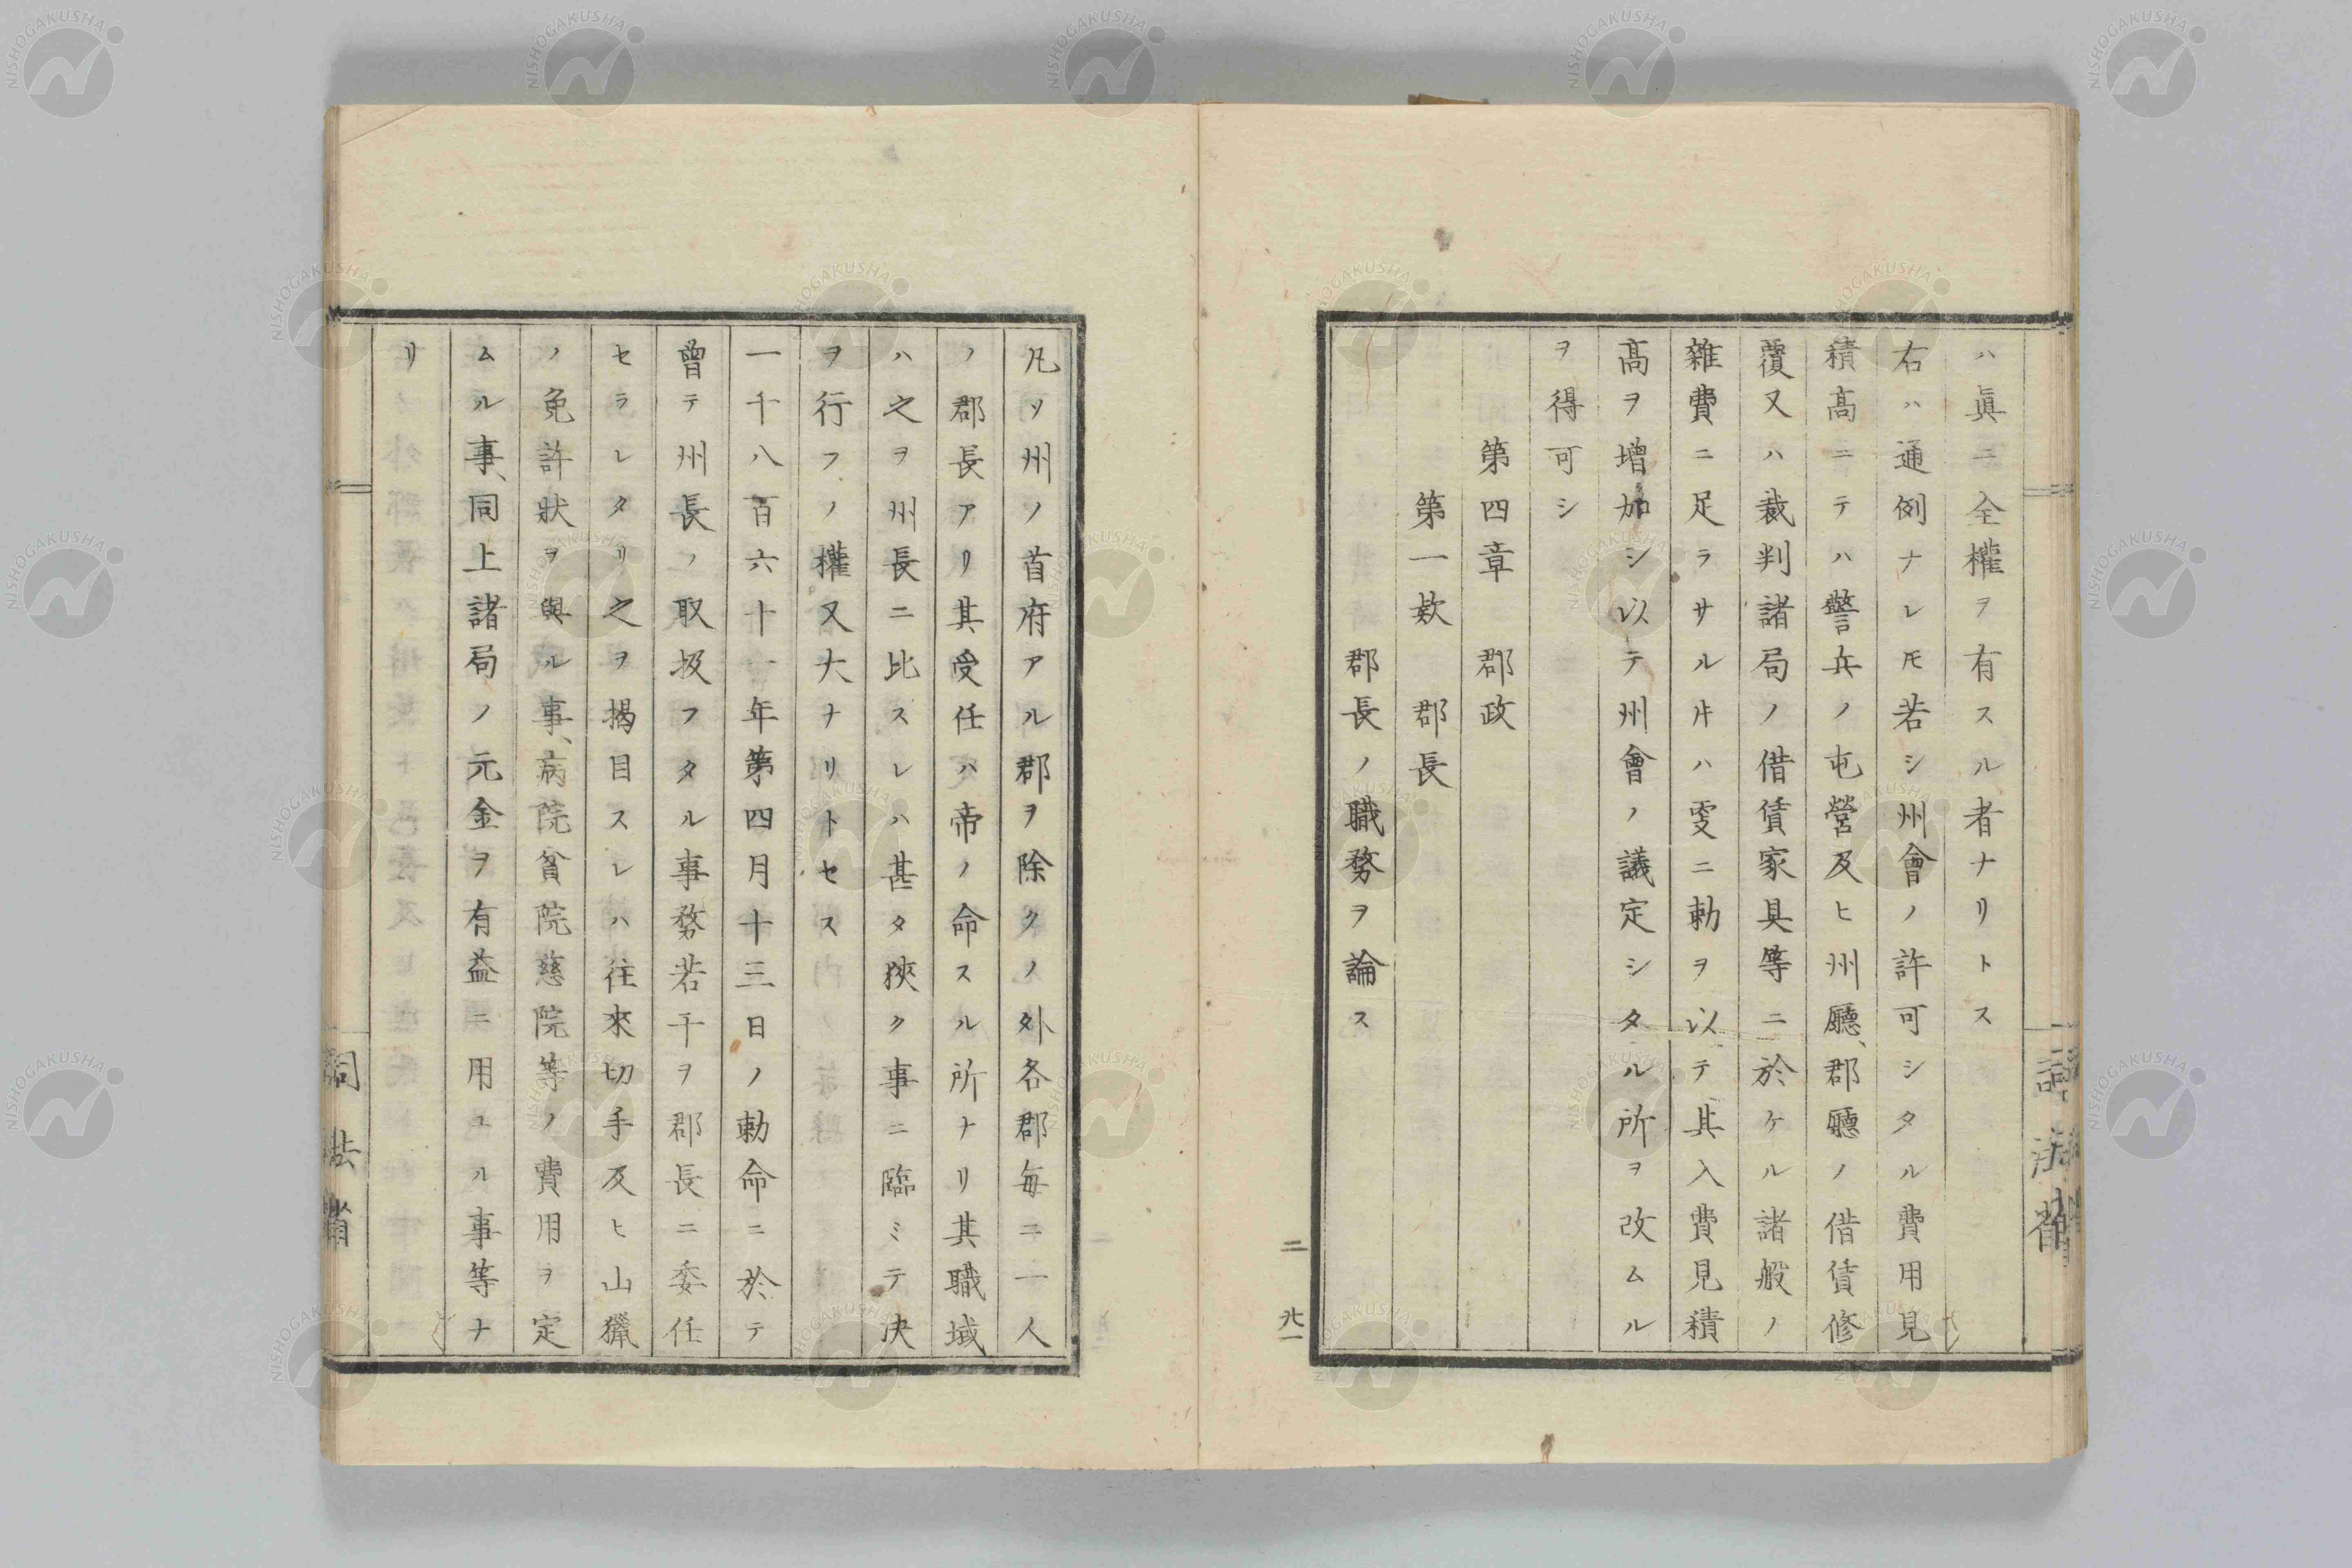 ハ眞ニ全權ヲ有スル者ナリトス
右ハ通例ナレㇳモ若シ州會ノ許可シタル費用見
積高ニテハ警兵ノ屯營及ヒ州廳、郡廳ノ借賃修
覆又ハ裁判諸局ノ借賃家具等ニ於ケル諸般ノ
雜費ニ足ラサルㇳキハ更ニ勅ヲ以テ其入費見積
高ヲ增加シ以テ州會ノ議定シタル所ヲ改ムル
ヲ得可シ
第四章 郡政
第一欵 郡長
郡長ノ職務ヲ論ス
二 廿一
凡ソ州ノ首府アル郡ヲ除クノ外各郡毎ニ一人
ノ郡長アリ其受任ハ帝ノ命スル所ナリ其職域
ハ之ヲ州長ニ比スレハ甚タ狹ク事ニ臨ミテ决
ヲ行フノ權又大ナリトセス
一千八百六十一年第四月十三日ノ勅命ニ於テ
曾テ州長ノ取扱フタル事務若干ヲ郡長ニ委任
セラレタリ之ヲ揭目スレハ往來切手及ヒ山獵
ノ免許狀ヲ與ル事、病院貧院慈院等ノ費用ヲ定
ムル事、同上諸局ノ元金ヲ有益ニ用ユル事等ナ
リ
司法省
NISHOGAKUSHA